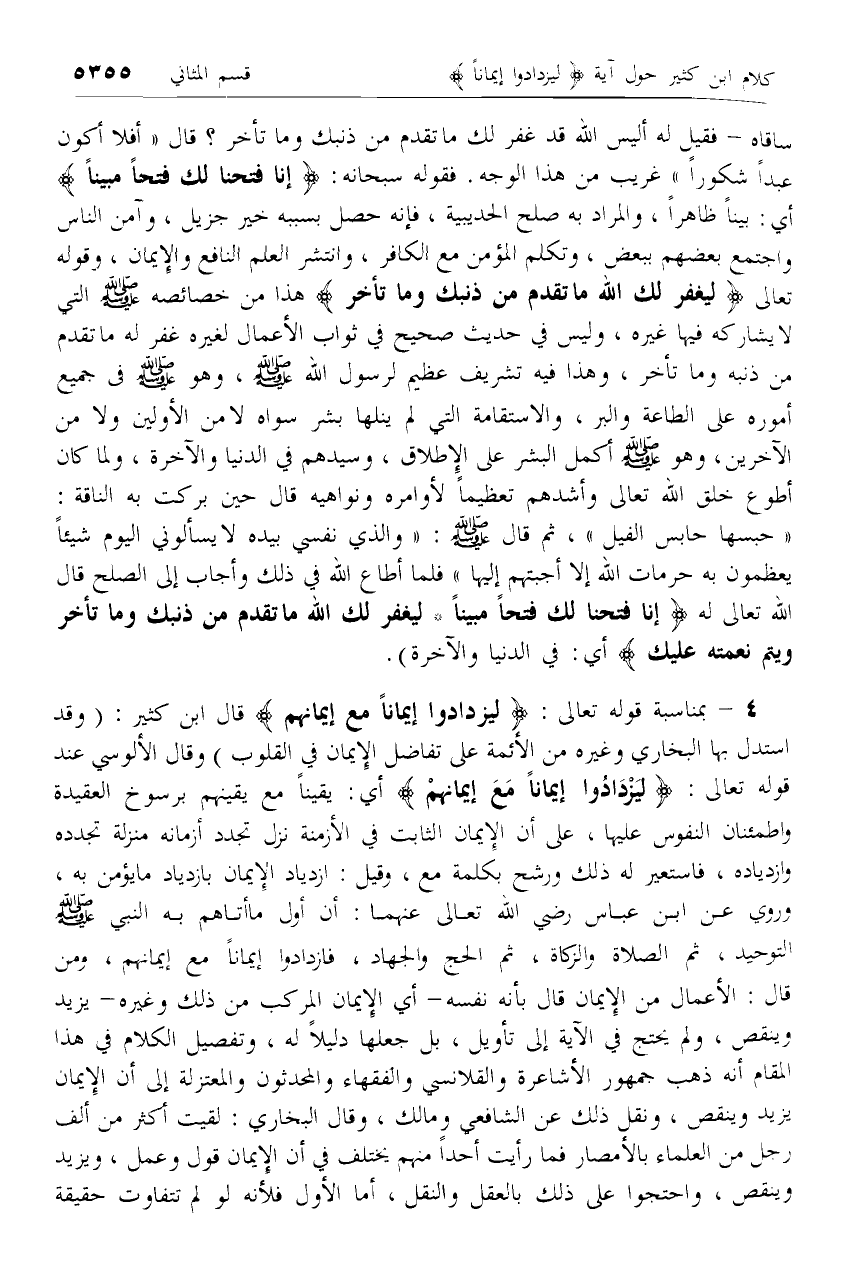 كلام ابن كثير حول آية ﴿ ليزدادوا إيماناً ﴾ قسم المثاني ٥٣٥٥
ساقاه – فقيل له أليس الله قد غفر لك ماتقدم من ذنبك وما تأخر ؟ قال « أفلا أكون
عبداً شكوراً » غريب من هذا الوجه . فقوله سبحانه : ﴿ إنا فتحنا لك فتحاً مبيناً ﴾
أي : بيناً ظاهراً ، والمراد به صلح الحديبية ، فإنه حصل بسببه خير جزيل ، وآمن الناس
واجتمع بعضهم ببعض ، وتكلم المؤمن مع الكافر ، وانتشر العلم النافع والإيمان ، وقوله
تعالى ﴿ ليغفر لك الله ماتقدم من ذنبك وما تأخر ﴾ هذا من خصائصه ﷺ التي
لايشاركه فيها غيره ، وليس في حديث صحيح في ثواب الأعمال لغيره غفر له ماتقدم
من ذنبه وما تأخر ، وهذا فيه تشريف عظيم لرسول الله ﷺ ، وهو ﷺ فى جميع
أموره على الطاعة والبر ، والاستقامة التي لم ينلها بشر سواه لامن الأولين ولا من
الآخرين ، وهو ﷺ أكمل البشر على الإطلاق ، وسيدهم في الدنيا والآخرة ، ولما كان
أطوع خلق الله تعالى وأشدهم تعظيماً لأوامره ونواهيه قال حين بركت به الناقة :
« حبسها حابس الفيل » ، ثم قال ﷺ : « والذي نفسي بيده لايسألوني اليوم شيئاً
يعظمون به حرمات الله إلا أجبتهم إليها » فلما أطاع الله في ذلك وأجاب إلى الصلح قال
الله تعالى له ﴿ إنا فتحنا لك فتحاً مبيناً * ليغفر لك الله ماتقدم من ذنبك وما تأخر
ويتم نعمته عليك ﴾ أي : في الدنيا والآخرة ) .
٤ – بمناسبة قوله تعالى : ﴿ ليزدادوا إيماناً مع إيمانهم ﴾ قال ابن كثير : ( وقد
استدل بها البخاري وغيره من الأئمة على تفاضل الإيمان في القلوب ) وقال الألوسي عند
قوله تعالى : ﴿ لِيَزْدَادُوا إيماناً مَعَ إيمانهمْ ﴾ أي : يقيناً مع يقينهم برسوخ العقيدة
واطمئنان النفوس عليها ، على أن الإيمان الثابت في الأزمنة نزل تجدد أزمانه منزلة تجدده
وازدياده ، فاستعير له ذلك ورشح بكلمة مع ، وقيل : ازدياد الإيمان بازدياد مايؤمن به ،
وروي عن ابن عباس رضي الله تعالى عنهما : أن أول ماأتاهم به النبي ﷺ
التوحيد ، ثم الصلاة والزكاة ، ثم الحج والجهاد ، فازدادوا إيماناً مع إيمانهم ، ومن
قال : الأعمال من الإيمان قال بأنه نفسه – أي الإيمان المركب من ذلك وغيره – يزيد
وينقص ، ولم يحتج في الآية إلى تأويل ، بل جعلها دليلاً له ، وتفصيل الكلام في هذا
المقام أنه ذهب جمهور الأشاعرة والقلانسي والفقهاء والمحدثون والمعتزلة إلى أن الإيمان
يزيد وينقص ، ونقل ذلك عن الشافعي ومالك ، وقال البخاري : لقيت أكثر من ألف
رجل من العلماء بالأمصار فما رأيت أحداً منهم يختلف في أن الإيمان قول وعمل ، ويزيد
وينقص ، واحتجوا على ذلك بالعقل والنقل ، أما الأول فلأنه لو لم تتفاوت حقيقة